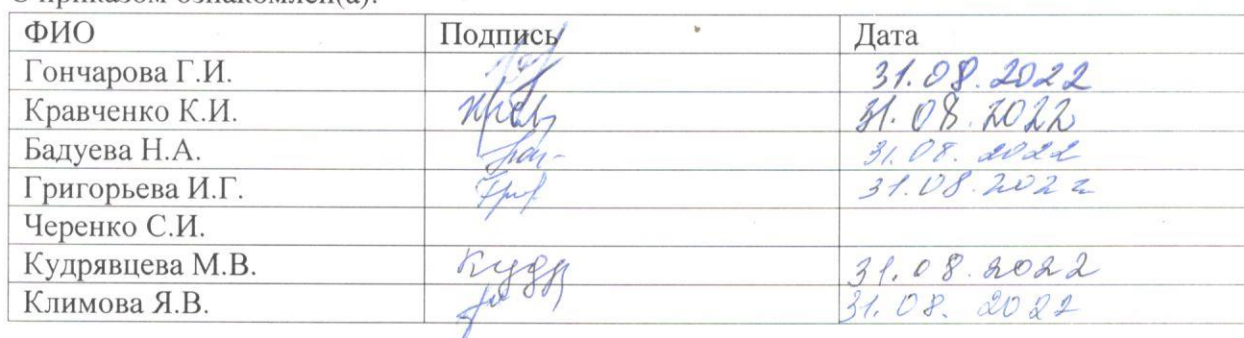 С приказом ознакомлен(а):
ФИО Подпись Дата
Гончарова Г.И. 31.08.2022
Кравченко К.И. 31.08.2022
Бадуева Н.А. 31.08.2022
Григорьева И.Г. 31.08.2022
Черенко С.И.
Кудрявцева М.В. Кудр 31.08.2022
Климова Я.В. 31.08.2022